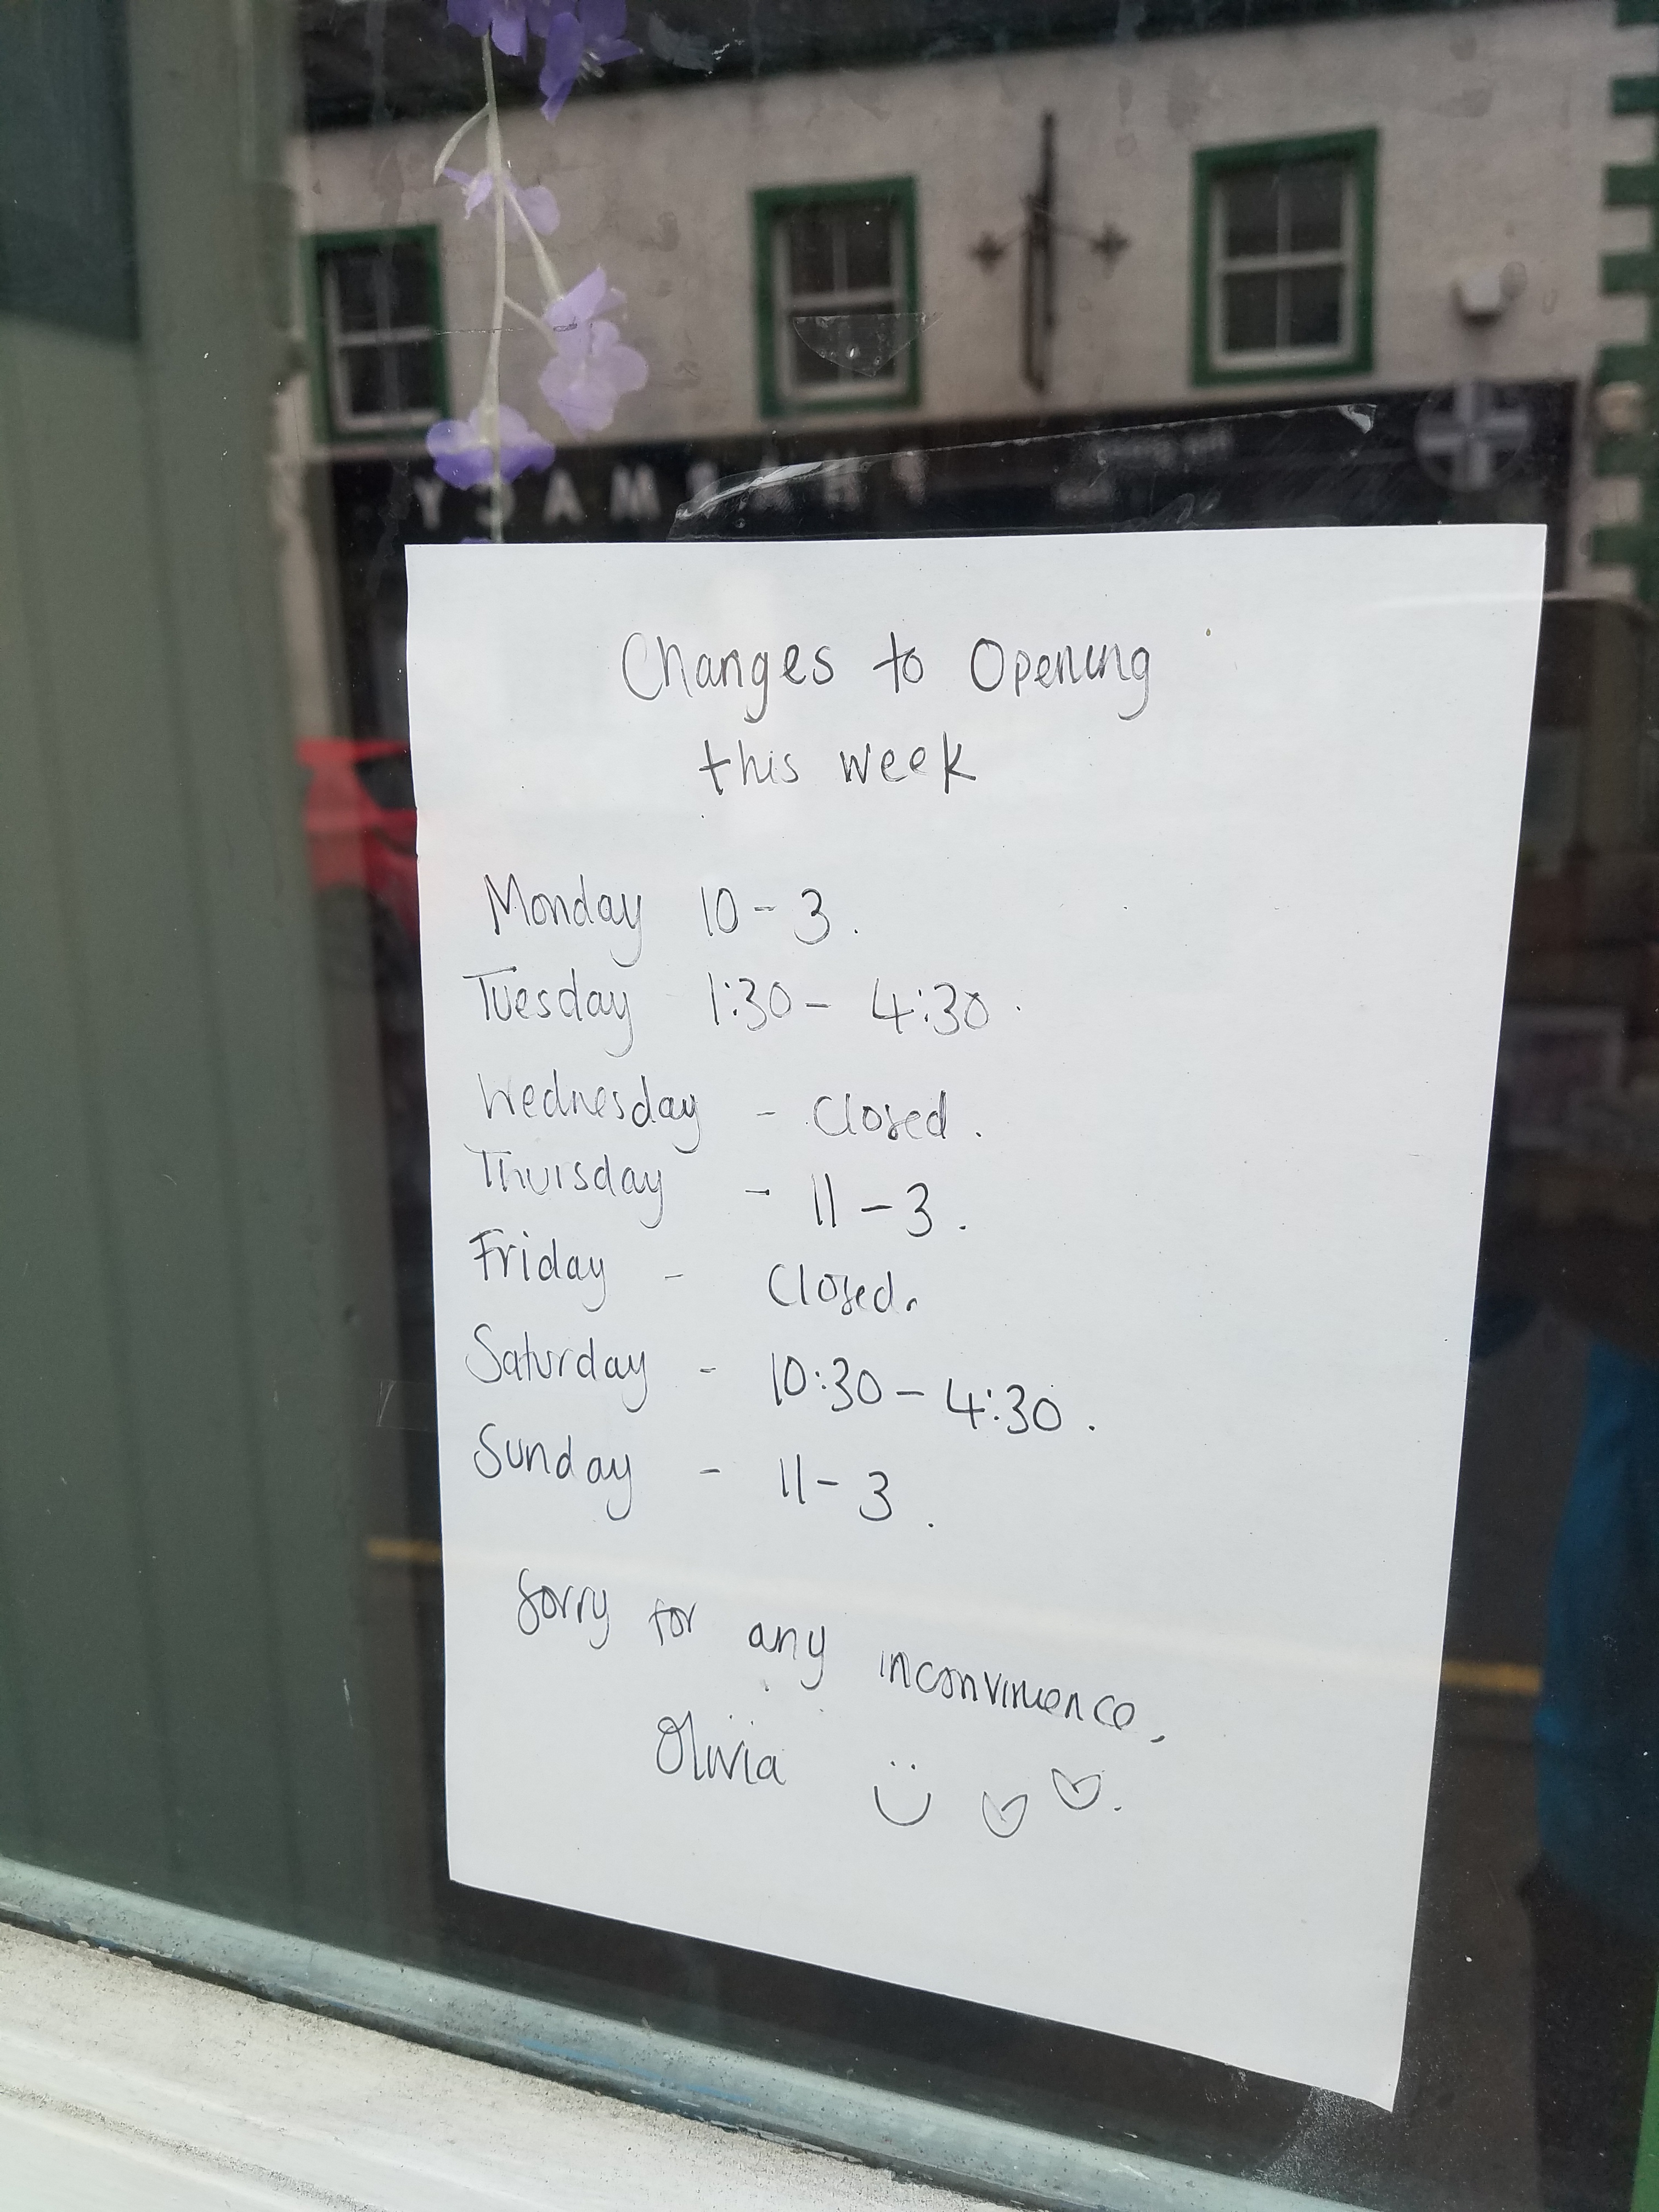 PHARMACY
Changes to Opening
this week
Monday 10 - 3.
Tuesday 1:30 - 4:30.
Wednesday - Closed.
Thursday - 11 - 3.
Friday - Closed.
Saturday - 10:30 - 4:30.
Sunday - 11 - 3.
Sorry for any inconvinience,
Olivia